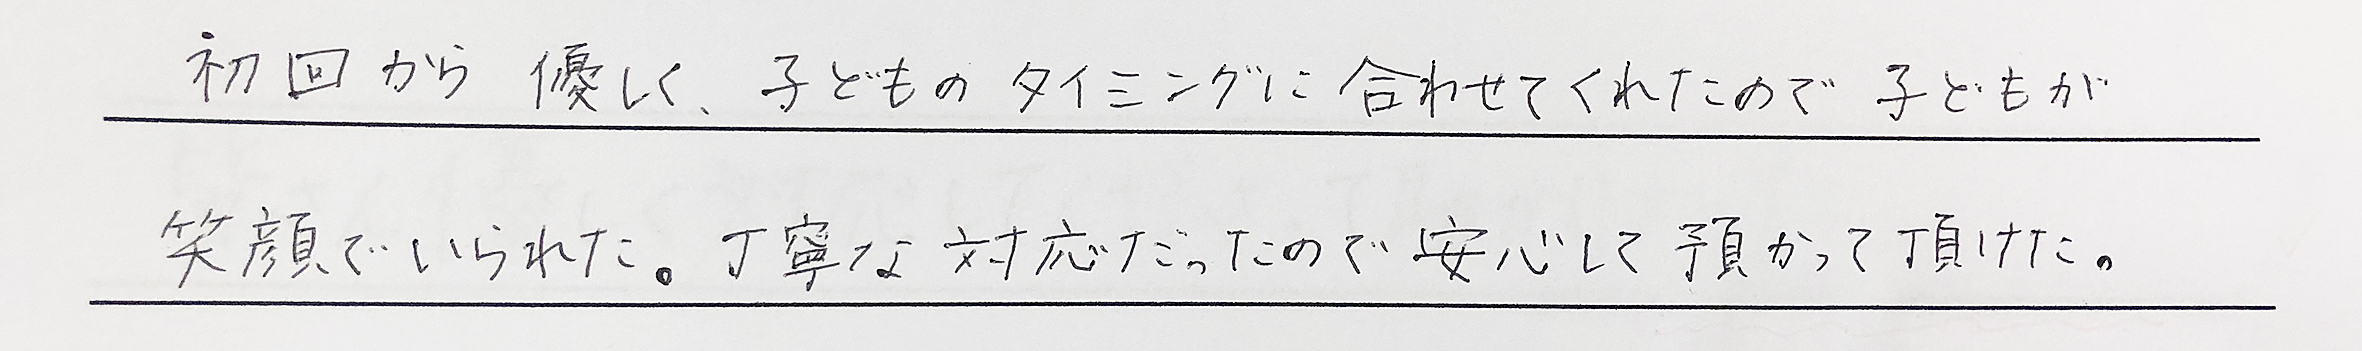 初回から優しく、子どものタイミングに合わせてくれたので子どもが
笑顔でいられた。丁寧な対応だったので安心して預かって頂けた。